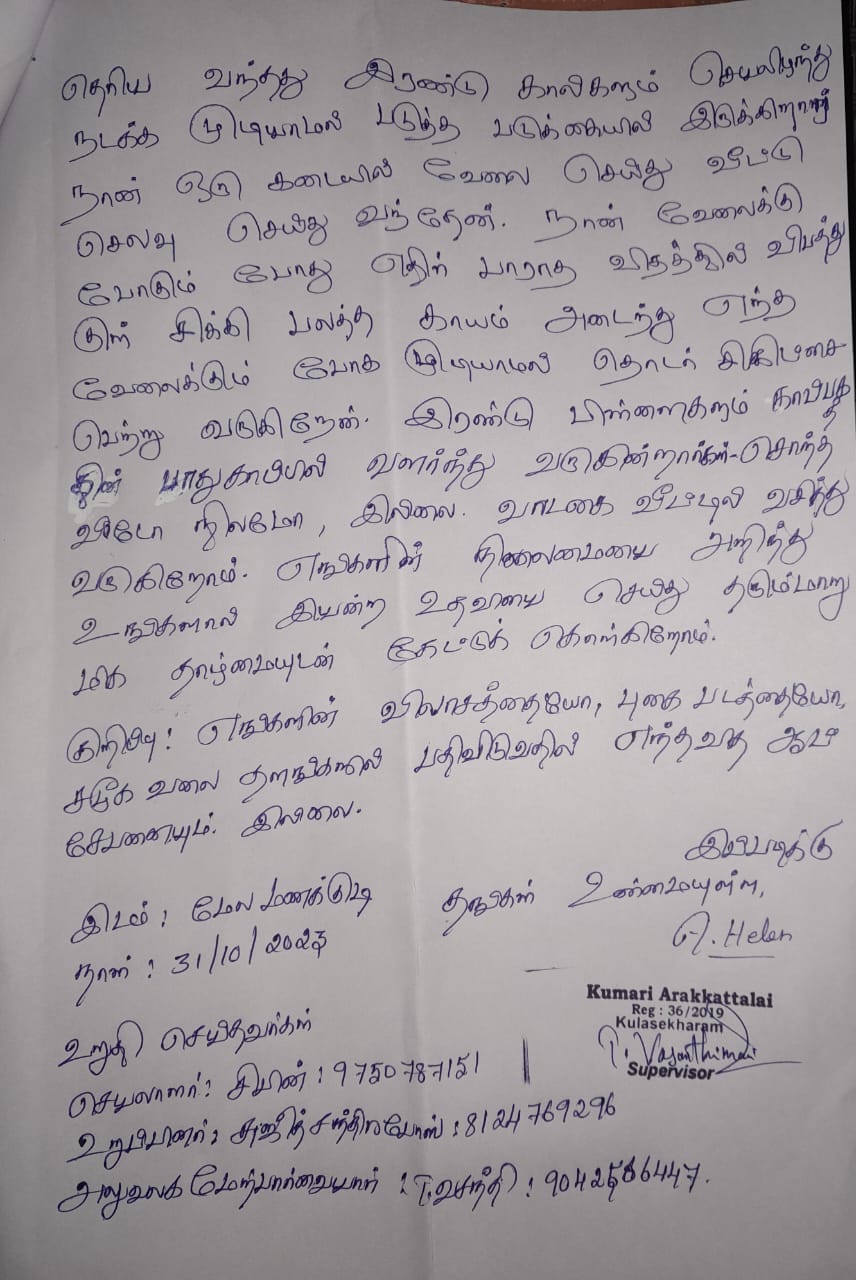 தெரிய வந்தது இரண்டு கால்களும் செயலிழந்து
நடக்க முடியாமல் படுத்த படுக்கையில் இருக்கிறார்
நான் ஒரு கடையில் வேலை செய்து வீட்டு
செலவு செய்து வந்தேன். நான் வேலைக்கு
போகும் போது எதிர் பாராத விதத்தில் விபத்து
குள் சிக்கி பலத்த காயம் அடைந்து எந்த
வேலைக்கும் போக முடியாமல் தொடர் சிகிட்சை
பெற்று வருகிறேன். இரண்டு பிள்ளைகளும் காப்பக
த்தின் பாதுகாப்பில் வளர்ந்து வருகின்றார்கள்-சொந்த
வீடோ நிலமோ, இல்லை. வாடகை வீட்டில் வசித்து
வருகிறோம். எங்களின் நிலைமையை அறிந்து
உங்களால் இயன்ற உதவியை செய்து தரும்மாறு
மிக தாழ்மையுடன் கேட்டுக் கொள்கிறோம்.
குறிப்பு! எங்களின் விலாசத்தையோ, புகை படத்தையோ,
சமூக வலை தளங்களில் பதிவிடுவதில் எந்தவித ஆட்
சேபனையும். இல்லை.
இப்படிக்கு
இடம் : மேல மணக்குடி தங்கள் உண்மையுள்ள,
நாள் : 31/10/2023 A. Helen
Kumari Arakkattalai
Reg : 36/2019
Kulasekharam
T. Vasanthimani
Supervisor
உறுதி செய்தவர்கள்
செயலாளர் : சிபின் : 9750787151
உறுப்பினர் : அஜித் சந்திரபோஸ் : 8124769296
அலுவலக மேற்பார்வையாளர் : T. வசந்தி : 9042566447.